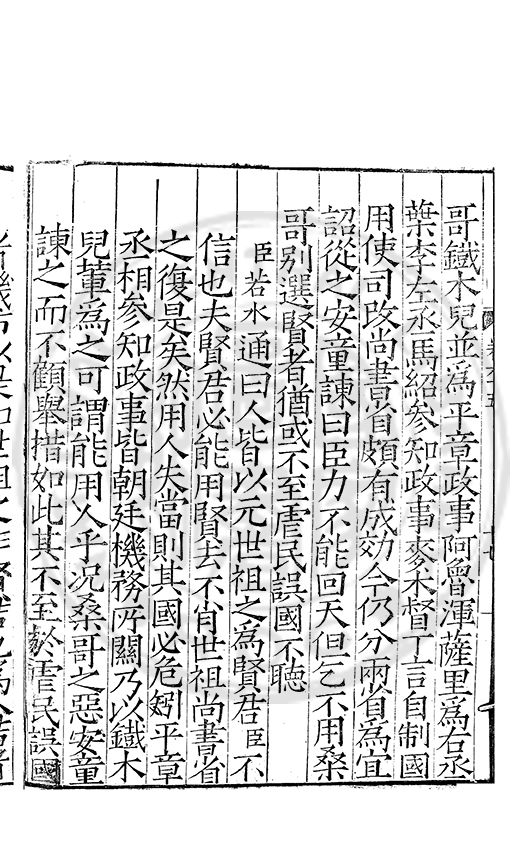 哥鐵木兒並爲平章政事阿魯渾薩里爲右丞
葉李左丞馬紹參知政事麥术督丁言自制國
用使司攺尚書省頗有成効今仍分兩省爲宜
詔從之安童諫曰臣力不能回天但乞不用桑
哥别選賢者猶或不至虐民誤國不聽
臣若水通曰人皆以元世祖之爲賢君臣不
信也夫賢君必能用賢去不肖世祖尚書省
之復是矣然用人失當則其國必危矧平章
丞相參知政事皆朝廷機務所關乃以鐵木
兒輩爲之可謂能用人乎况桑哥之惡安童
諫之而不顧舉措如此其不至於虐民誤國